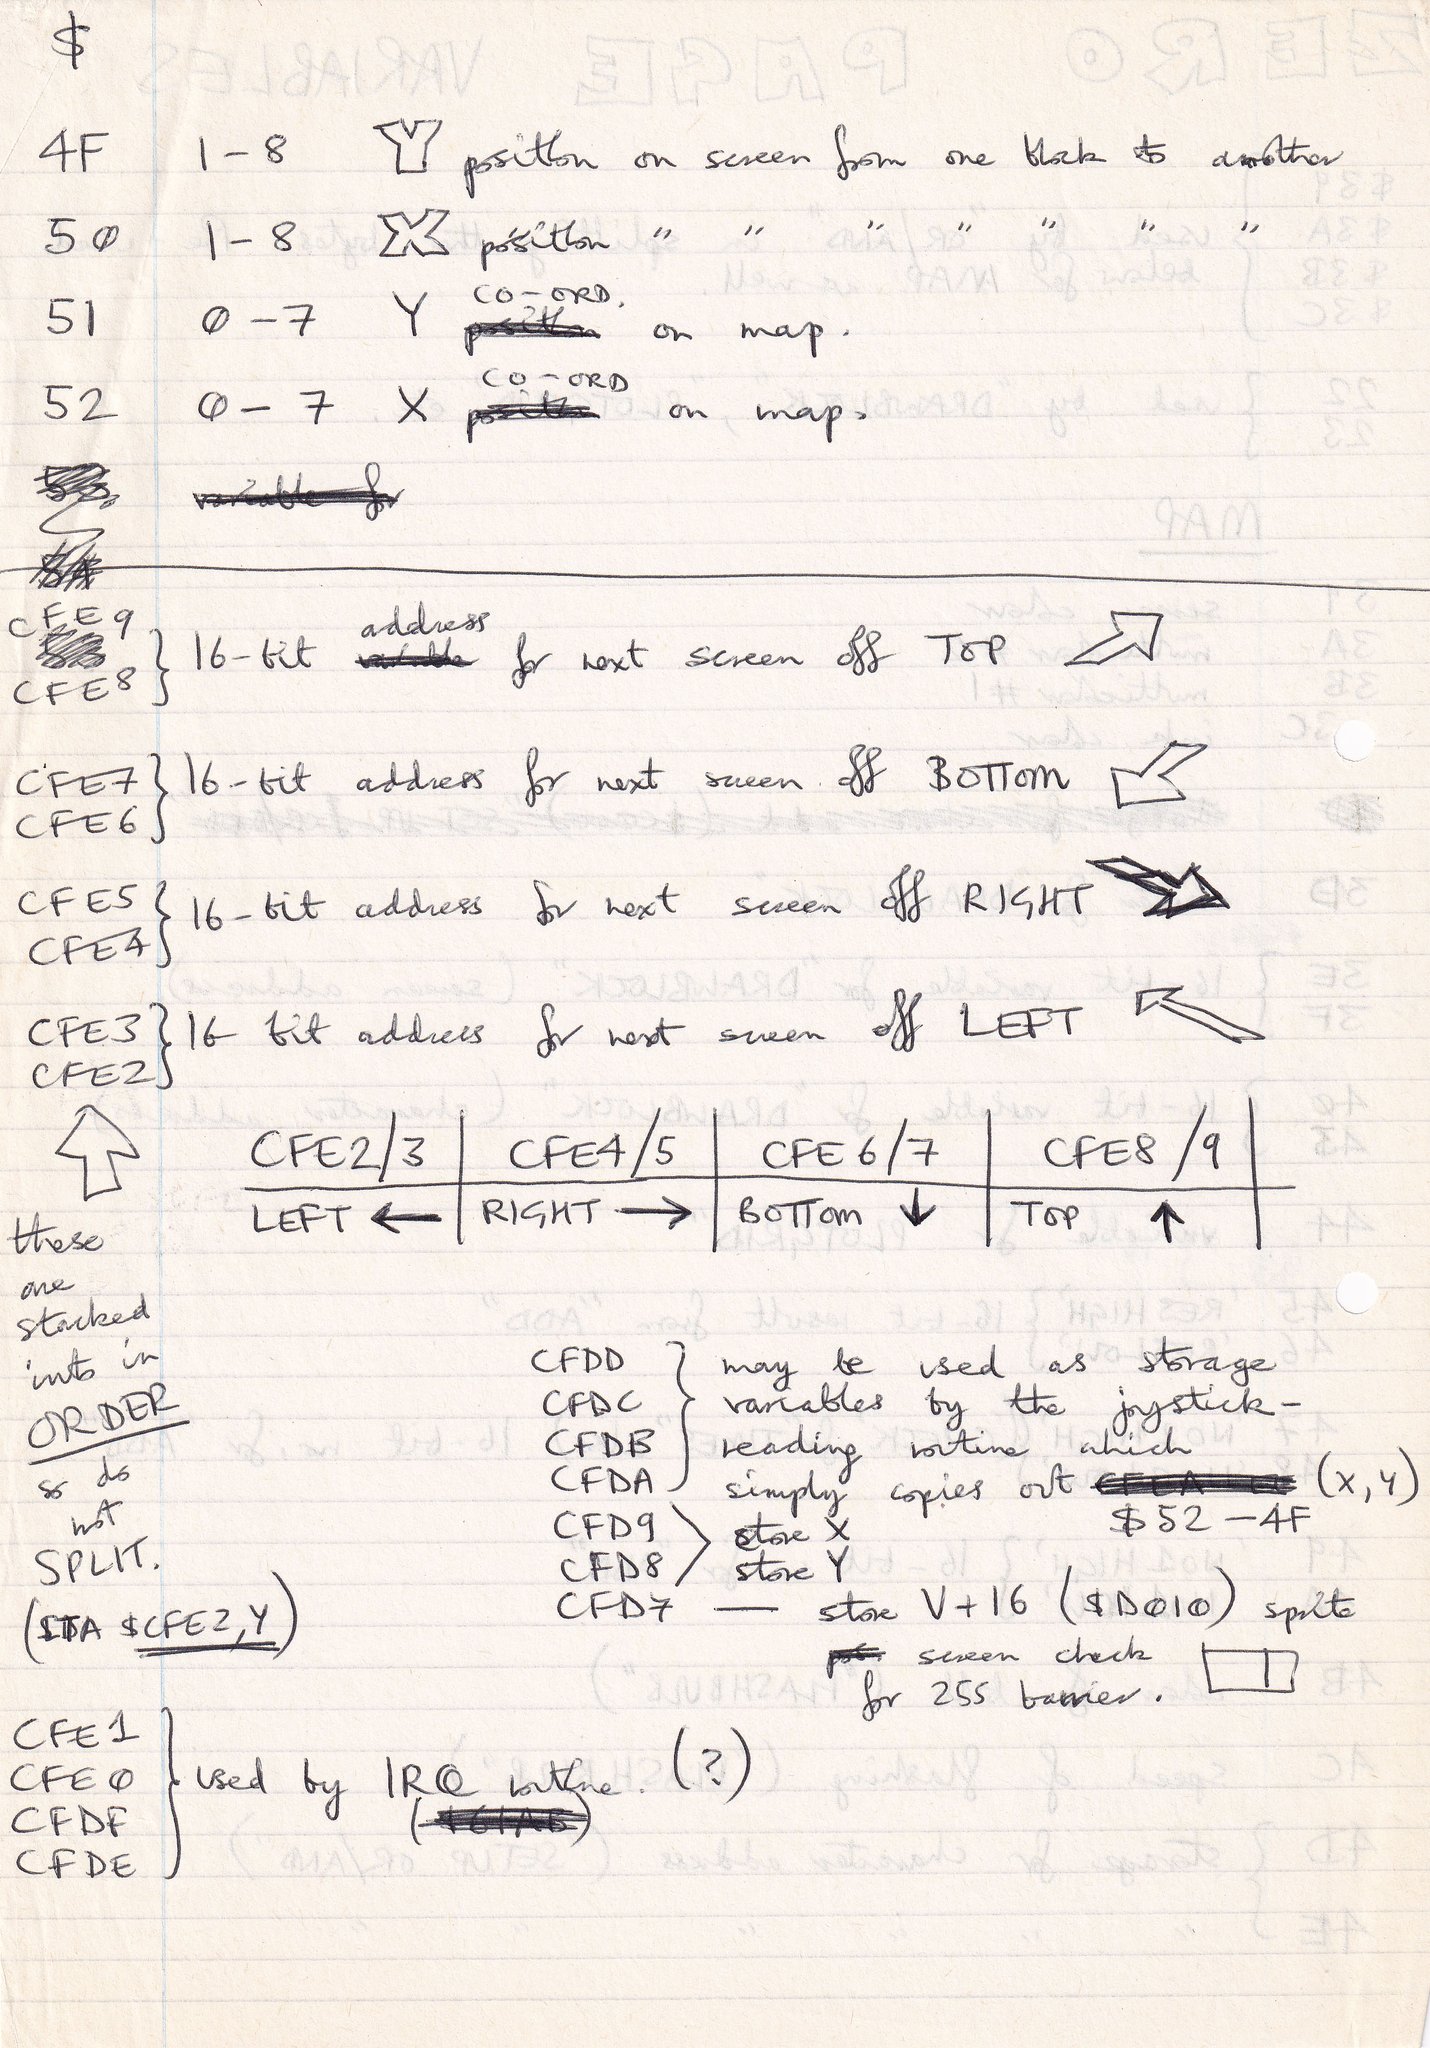 $
4F 1-8 Y position on screen from one block to another
50 1-8 X position " " " " " " "
51 0-7 Y CO-ORD. position on map.
52 0-7 X CO-ORD position on map.
variable for
CFE9
CFE8 } 16-bit address variable for next screen off TOP
CFE7
CFE6 } 16-bit address for next screen off BOTTOM
CFE5
CFE4 } 16-bit address for next screen off RIGHT
CFE3
CFE2 } 16-bit address for next screen off LEFT
CFE2/3 | CFE4/5 | CFE6/7 | CFE8/9
LEFT ← | RIGHT → | BOTTOM ↓ | TOP ↑
these
are
stacked
into in
ORDER
so do
not
SPLIT.
(STA $CFE2,Y)
CFDD } may be used as storage
CFDC variables by the joystick-
CFDB reading routine which
CFDA simply copies out (X,Y)
$52-4F
CFD9 store X
CFD8 store Y
CFD7 — store V+16 ($D010) sprite
screen check
for 255 barrier.
CFE1
CFE0 } used by IRQ routine. (?)
CFDF
CFDE